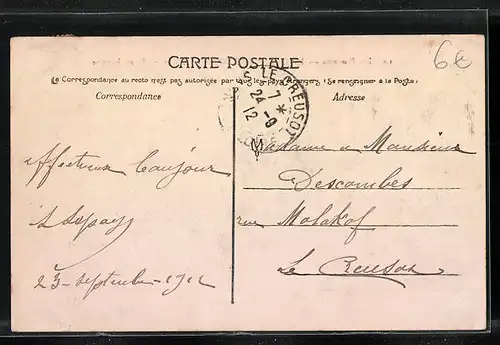 6€
CARTE POSTALE
La Correspondance au recto n'est pas autorisée par tous les pays étrangers (Se renseigner à la Poste)
LE CREUSOT
7 *
24 - 9
12
Correspondance
Adresse
M
Madame et Monsieur
affectueux Bonjour
Descombes
rue Malakof
Le Creusot
23 - septembre - 1912